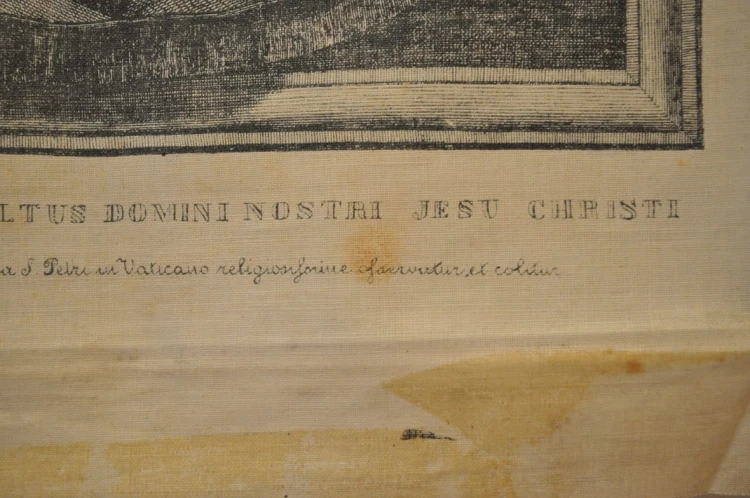 LTUS DOMINI NOSTRI JESU CHRISTI
a S Petri in Vaticano religiosissime et colitur